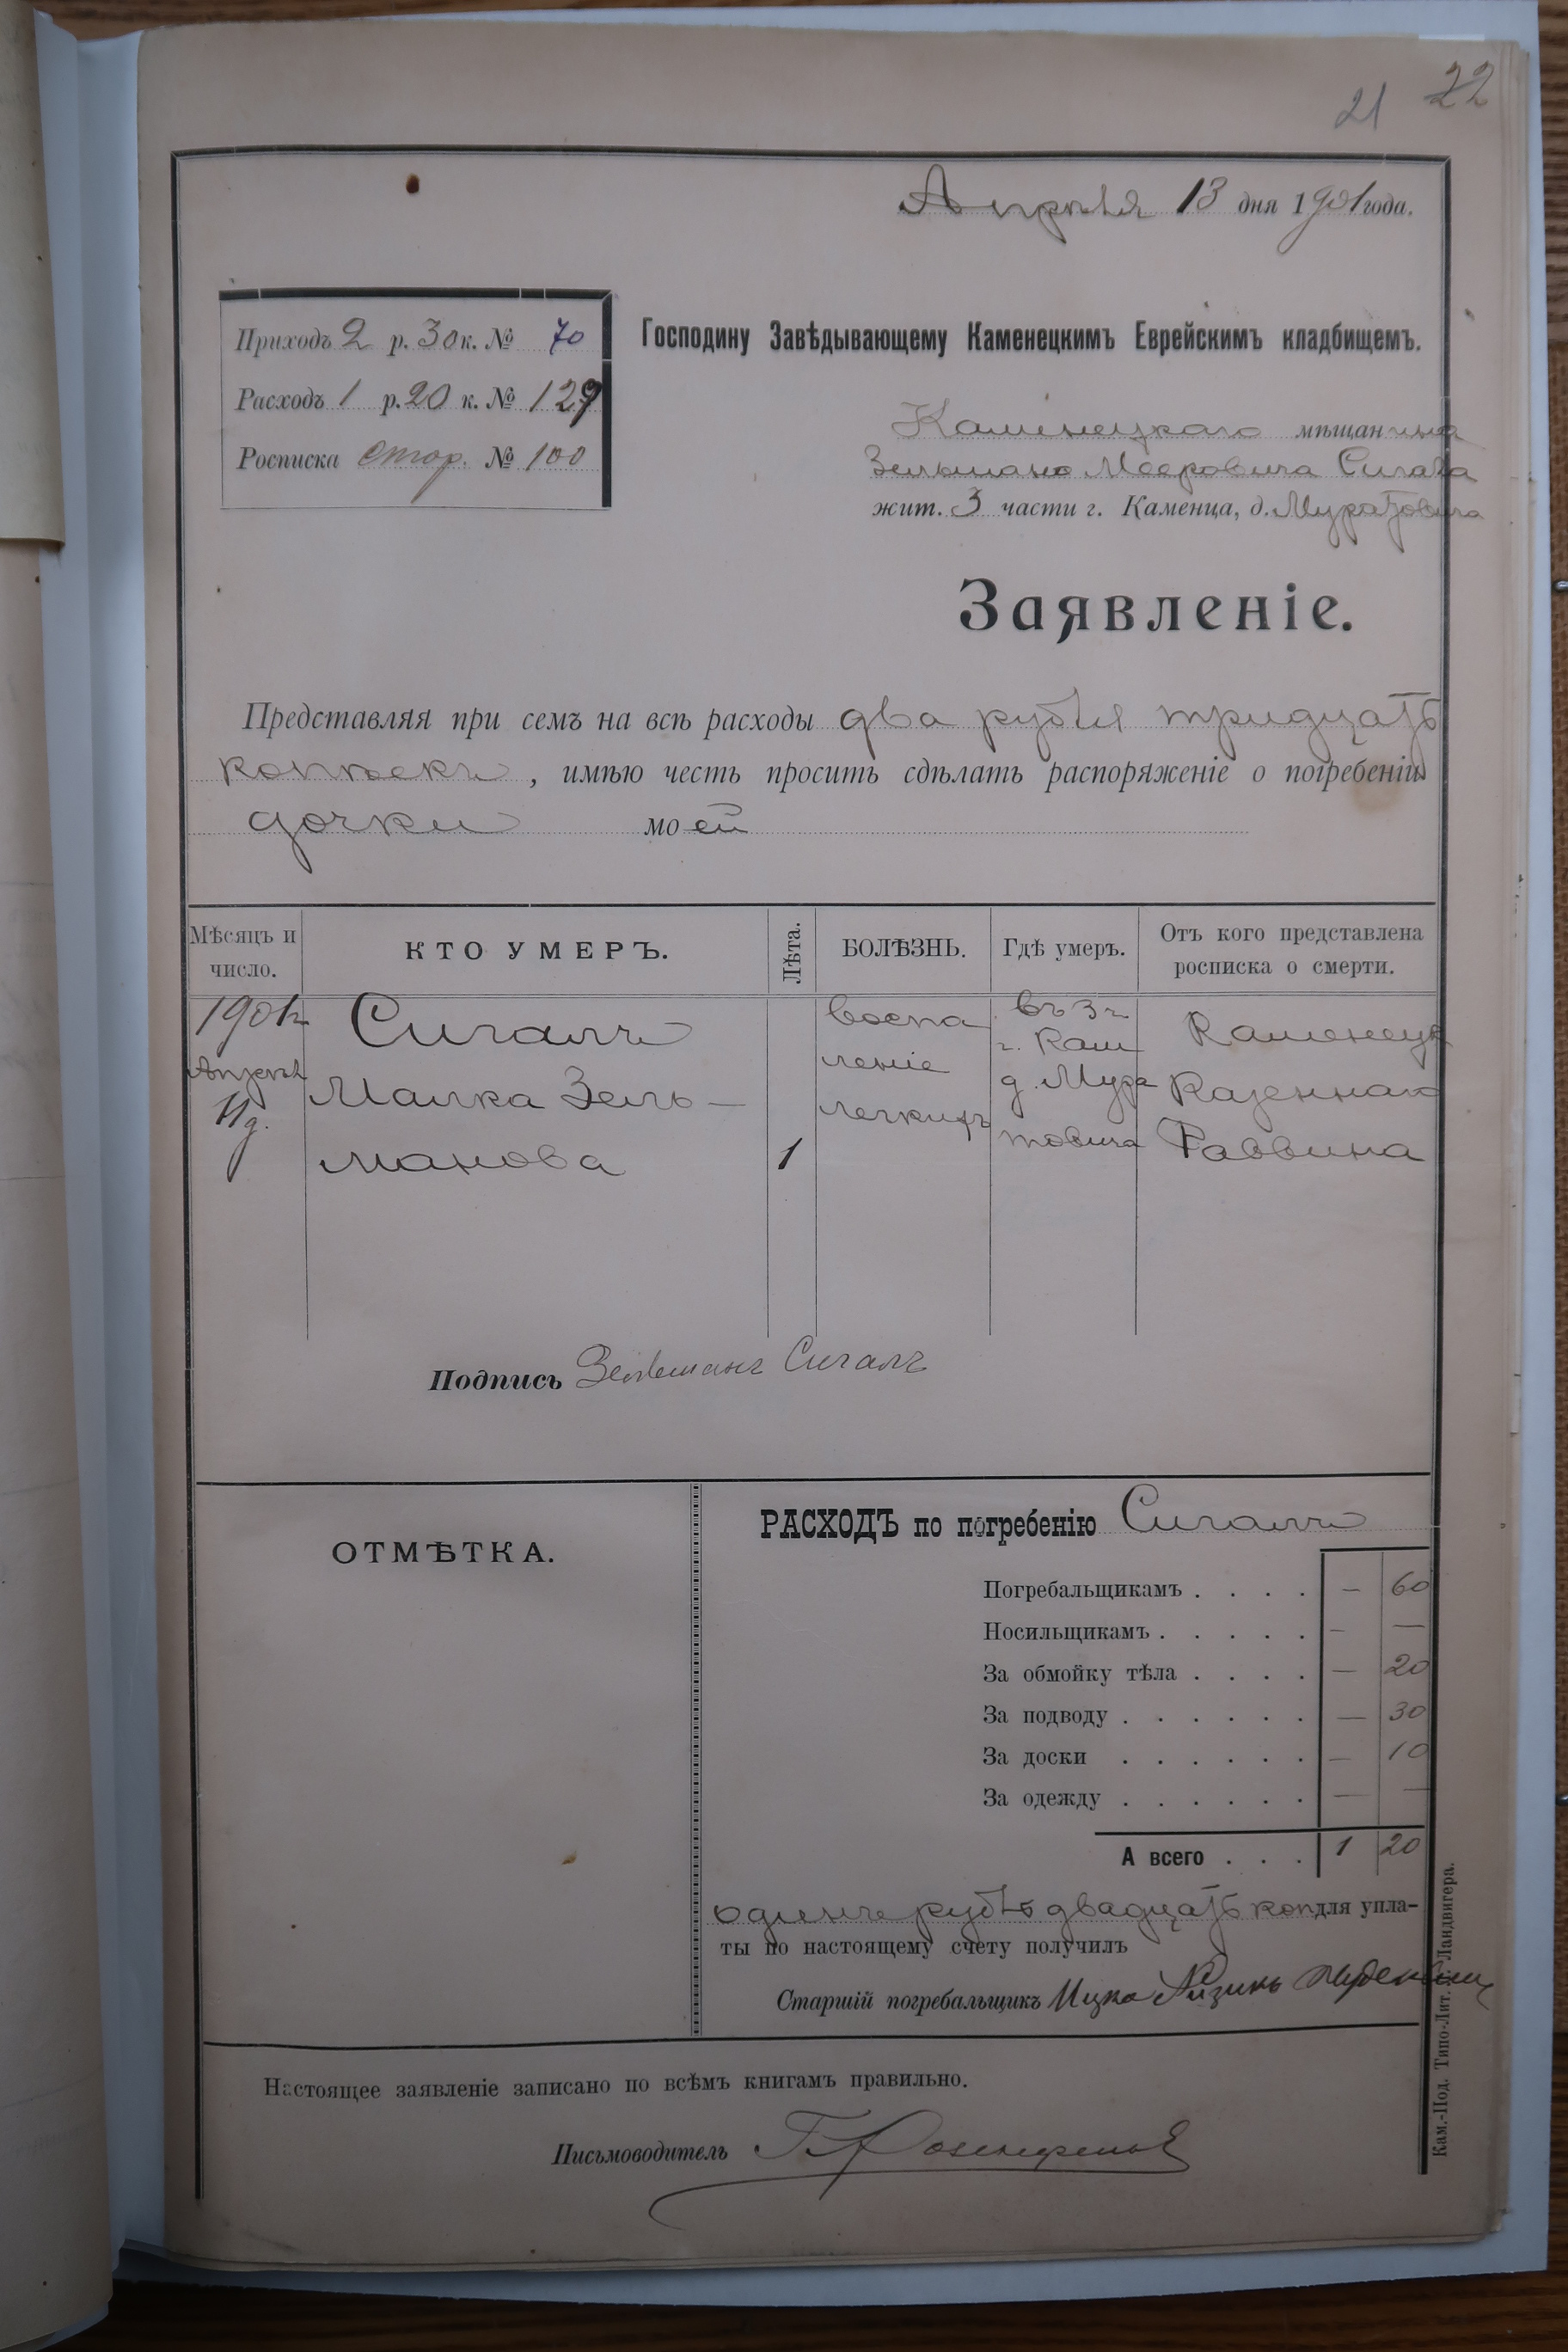 21 22
Апрѣля 13 дня 1901 года.
Приходъ 2 р. 30 к. № 70
Расходъ 1 р. 20 к. № 129
Росписка стор. № 100
Господину Завѣдывающему Каменецкимъ Еврейскимъ кладбищемъ.
Каменецкаго мѣщанина
Зельмана Мееровича Сигала
жит. 3 части г. Каменца, д. Муратовича
Заявленіе.
Представляя при семъ на всѣ расходы два рубля тридцать
копѣекъ, имѣю честь просить сдѣлать распоряженіе о погребеніи
дочки моей
Мѣсяцъ и число. КТО УМЕРЪ. Лѣта. БОЛѢЗНЬ. Гдѣ умеръ. Отъ кого представлена росписка о смерти.
1901 г. Сигалъ воспа въ 3 ч. Каменецк
Апрѣля Малка Зель- леніе г. Кам д. Мура Казеннаго
11 д. манова 1 легкихъ товича Раввина
Подпись Зельманъ Сигалъ
ОТМѢТКА.
РАСХОДЪ по погребенію Сигалъ
Погребальщикамъ . . . . — 60
Носильщикамъ . . . . . — —
За обмойку тѣла . . . . — 20
За подводу . . . . . . — 30
За доски . . . . . . — 10
За одежду . . . . . . — —
А всего . . . 1 20
одинъ рубль двадцать коп для упла-
ты по настоящему счету получилъ
Старшій погребальщикъ Ицко Айзикъ
Настоящее заявленіе записано по всѣмъ книгамъ правильно.
Письмоводитель
Кам.-Под. Типо-Лит. Ландвигера.